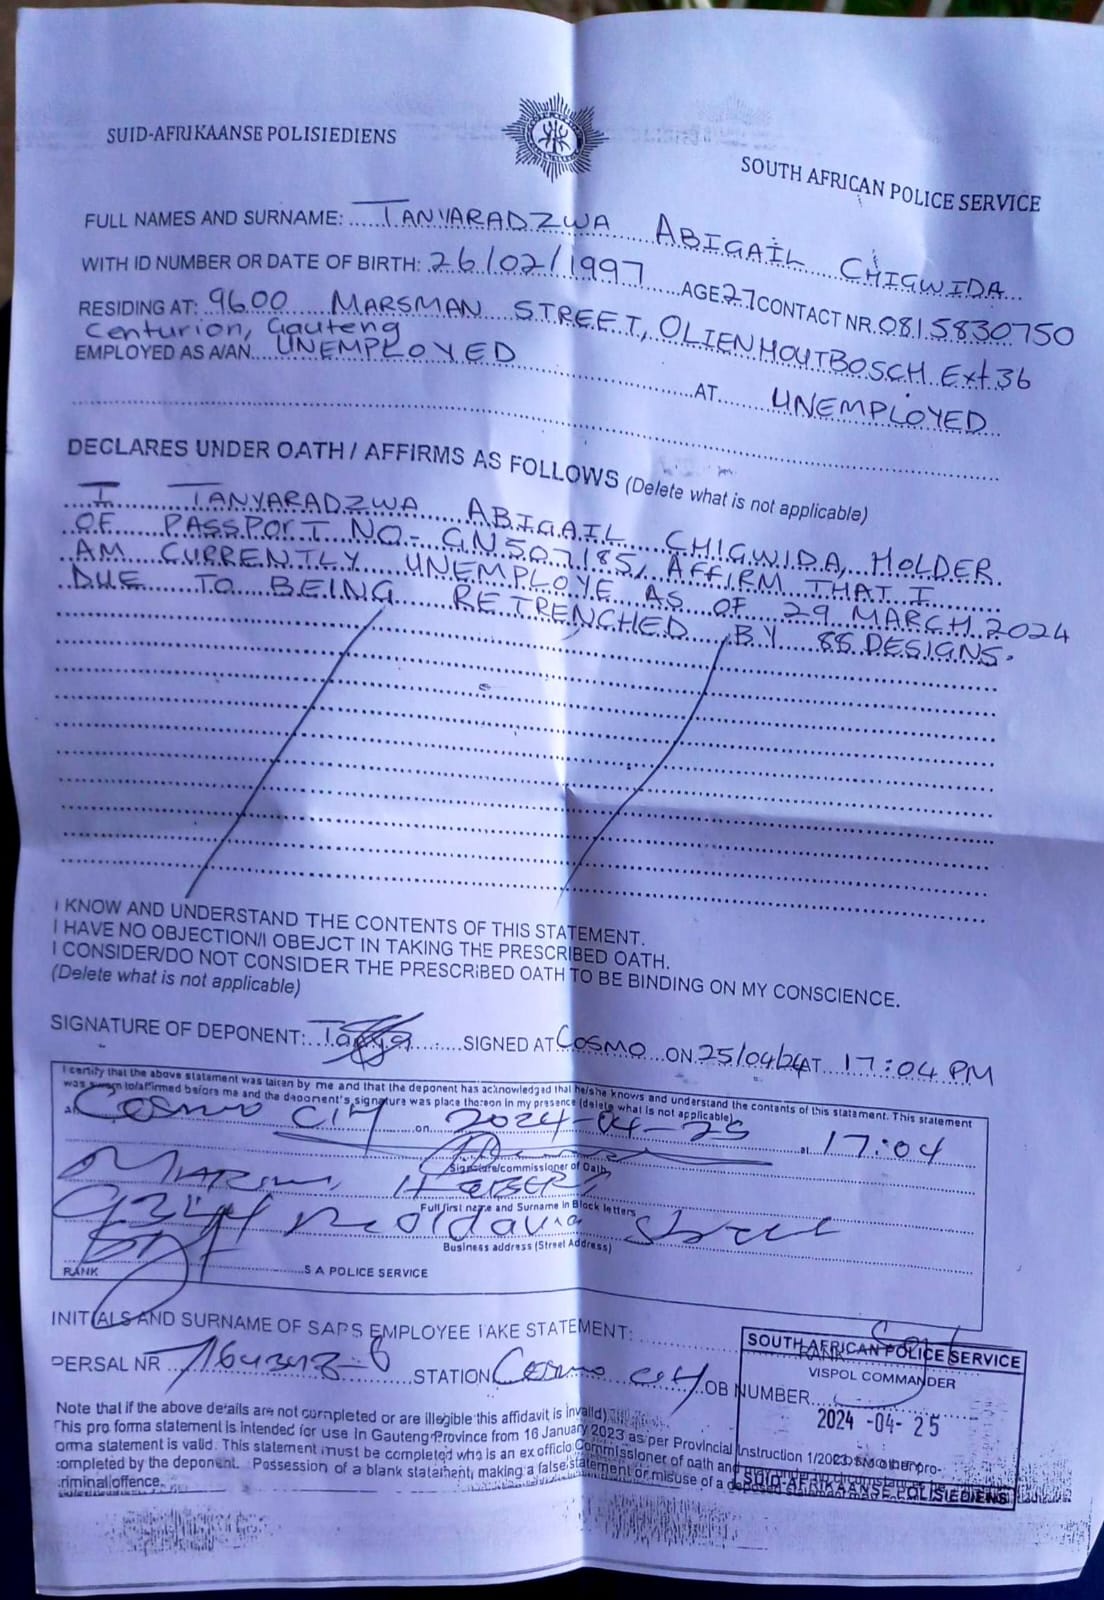 SUID-AFRIKAANSE POLISIEDIENS
SOUTH AFRICAN POLICE SERVICE
FULL NAMES AND SURNAME: TANYARADZWA ABIGAIL CHIGWIDA
WITH ID NUMBER OR DATE OF BIRTH: 26/02/1997 AGE 27 CONTACT NR. 0815830750
RESIDING AT: 9600 MARSMAN STREET, OLIENHOUTBOSCH Ext 36
Centurion, Gauteng
EMPLOYED AS A/AN UNEMPLOYED AT UNEMPLOYED
DECLARES UNDER OATH / AFFIRMS AS FOLLOWS (Delete what is not applicable)
I TANYARADZWA ABIGAIL CHIGWIDA, HOLDER
OF PASSPORT NO- GN507185, AFFIRM THAT I
AM CURRENTLY UNEMPLOYE AS OF 29 MARCH 2024
DUE TO BEING RETRENCHED BY 88 DESIGNS.
I KNOW AND UNDERSTAND THE CONTENTS OF THIS STATEMENT.
I HAVE NO OBJECTION/I OBEJCT IN TAKING THE PRESCRIBED OATH.
I CONSIDER/DO NOT CONSIDER THE PRESCRIBED OATH TO BE BINDING ON MY CONSCIENCE.
(Delete what is not applicable)
SIGNATURE OF DEPONENT: SIGNED AT COSMO ON 25/04/24 AT 17:04 PM
I certify that the above statement was taken by me and that the deponent has acknowledged that he/she knows and understand the contents of this statement. This statement
was sworn to/affirmed before me and the deponent's signature was place thereon in my presence (delete what is not applicable)
At Cosmo City on 2024-04-25 at 17:04
Signature/commissioner of Oath
Full first name and Surname in Block letters
9244 Moldavia Street
Business address (Street Address)
RANK S A POLICE SERVICE
INITIALS AND SURNAME OF SAPS EMPLOYEE TAKE STATEMENT:
PERSAL NR STATION Cosmo City OB NUMBER
SOUTH AFRICAN POLICE SERVICE
VISPOL COMMANDER
2024 -04- 25
SUID-AFRIKAANSE POLISIEDIENS
Note that if the above details are not completed or are illegible this affidavit is invalid)
This pro forma statement is intended for use in Gauteng Province from 16 January 2023 as per Provincial Instruction 1/2023.
orma statement is valid. This statement must be completed who is an ex officio Commissioner of oath and
completed by the deponent. Possession of a blank statement, making a false statement or misuse of a
criminal offence.